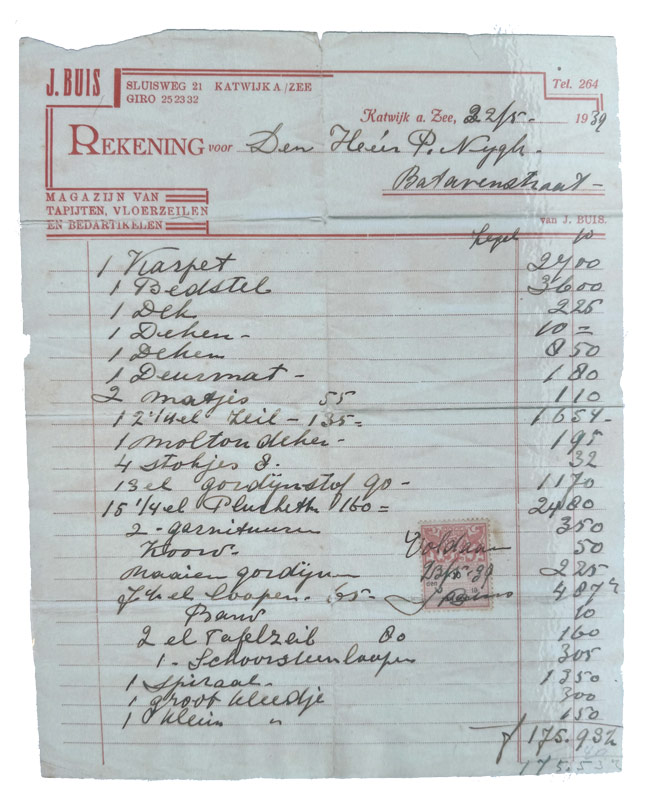 J. BUIS
SLUISWEG 21 KATWIJK A/ZEE
GIRO 25 23 32
Tel. 264
Katwijk a. Zee, 22/5- 1939
REKENING voor Den Heer P. Nygh.
Batavenstraat-
MAGAZIJN VAN
TAPIJTEN, VLOERZEILEN
EN BEDARTIKELEN
van J. BUIS.
Zegel 10
1 Karpet 2700
1 Bedstel 3600
1 Dek 225
1 Deken- 10=
1 Deken 850
1 Deurmat- 180
2 matjes 55 110
1 2 1/4 el Zeil- 135= 1654-
1 molton deken- 195
4 stokjes 8. 32
13 el gordijnstof 90- 1170
15 1/4 el Pluchette 160= 2480
2- garnituren 350
Koord- Voldaan 50
naaien gordijnen 23/5-39 225
7 1/2 el loopen- 65- J Buis 487 1/2
Band 10
2 el Tafelzeil 80 160
1- Schoorsteenlooper 305
1 Spiraal- 1350
1 groot kleedje 300
1 klein " 150
f 175.93 1/2